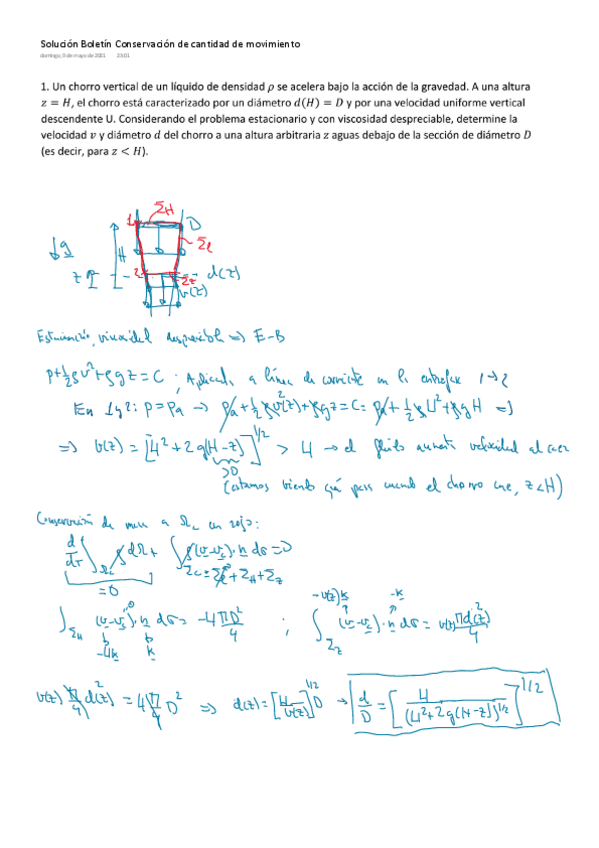 Solución Boletín Conservación de cantidad de movimiento
domingo, 9 de mayo de 2021 23:01
1. Un chorro vertical de un líquido de densidad ρ se acelera bajo la acción de la gravedad. A una altura
z = H, el chorro está caracterizado por un diámetro d(H) = D y por una velocidad uniforme vertical
descendente U. Considerando el problema estacionario y con viscosidad despreciable, determine la
velocidad v y diámetro d del chorro a una altura arbitraria z aguas debajo de la sección de diámetro D
(es decir, para z < H).
Σ_H
1 D
↓g H Σ_l
z 2 Σ_z d(z)
v(z)
Estacionario, viscosidad despreciable ⇒ E-B
p+½ρv²+ρgz = C ; Aplicada a línea de corriente en la entrefase 1→2
En 1 y 2: p = pa → pa+½ρv²(z)+ρgz = C = pa+½ρU²+ρgH ⇒
⇒ v(z) = [U²+2g(H-z)]^{1/2} > U → el fluido aumenta velocidad al caer
>0
(estamos viendo qué pasa cuando el chorro cae, z<H)
Conservación de masa a Ω_c en rojo:
d/dt ∫_{Ω_c} ρdΩ + ∫ρ(v-v_c)·n dσ = 0
=0 Σ_c = Σ_l+Σ_H+Σ_z
∫_{Σ_H} (v-v_c)·n dσ = -U πD²/4 ; ∫_{Σ_z} (v-v_c)·n dσ = v(z) πd(z)²/4
-Uk k -v(z)k -k
v(z) π/4 d(z)² = U π/4 D² ⇒ d(z) = [U/v(z)]^{1/2} D → d/D = [U/(U²+2g(H-z))^{1/2}]^{1/2}